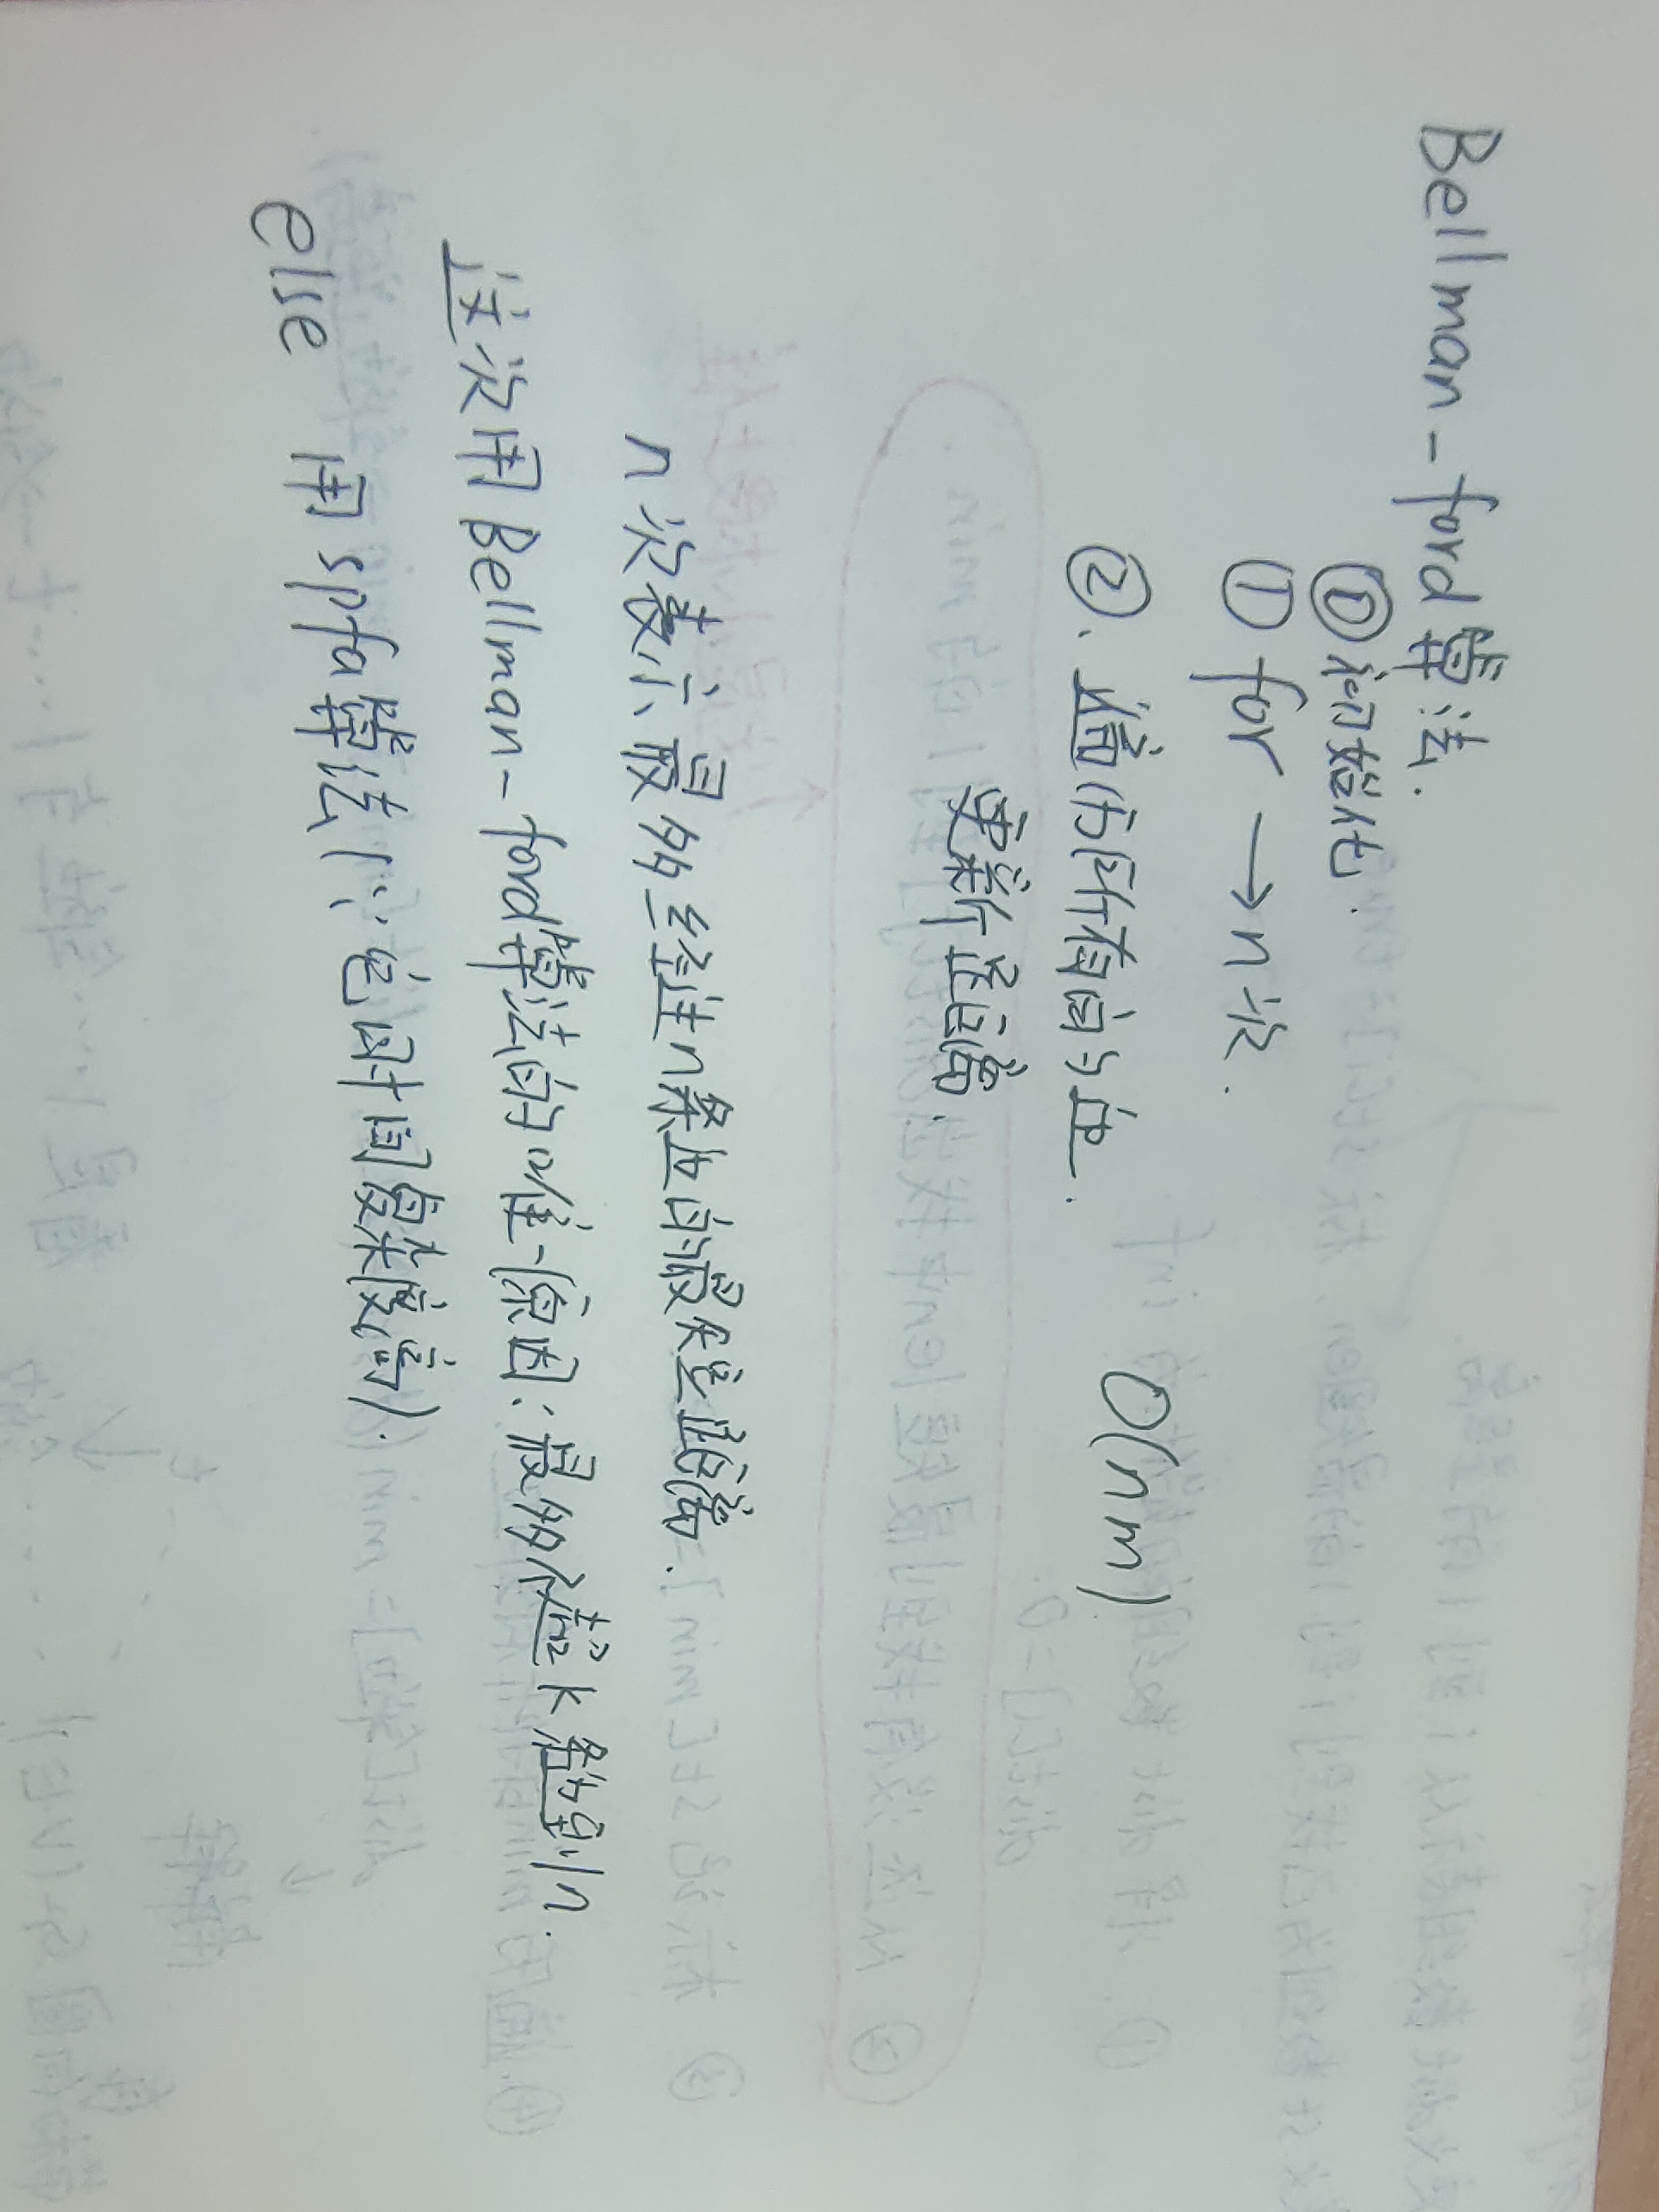 Bellman-ford算法.
⓪初始化.
① for → n次.
②. 遍历所有的边. O(nm)
更新距离.
n次表示最多经过n条边的最短距离.
这次用Bellman-ford算法的唯一原因:最多经过k条边到n.
else 用spfa算法(∵它时间复杂度高).